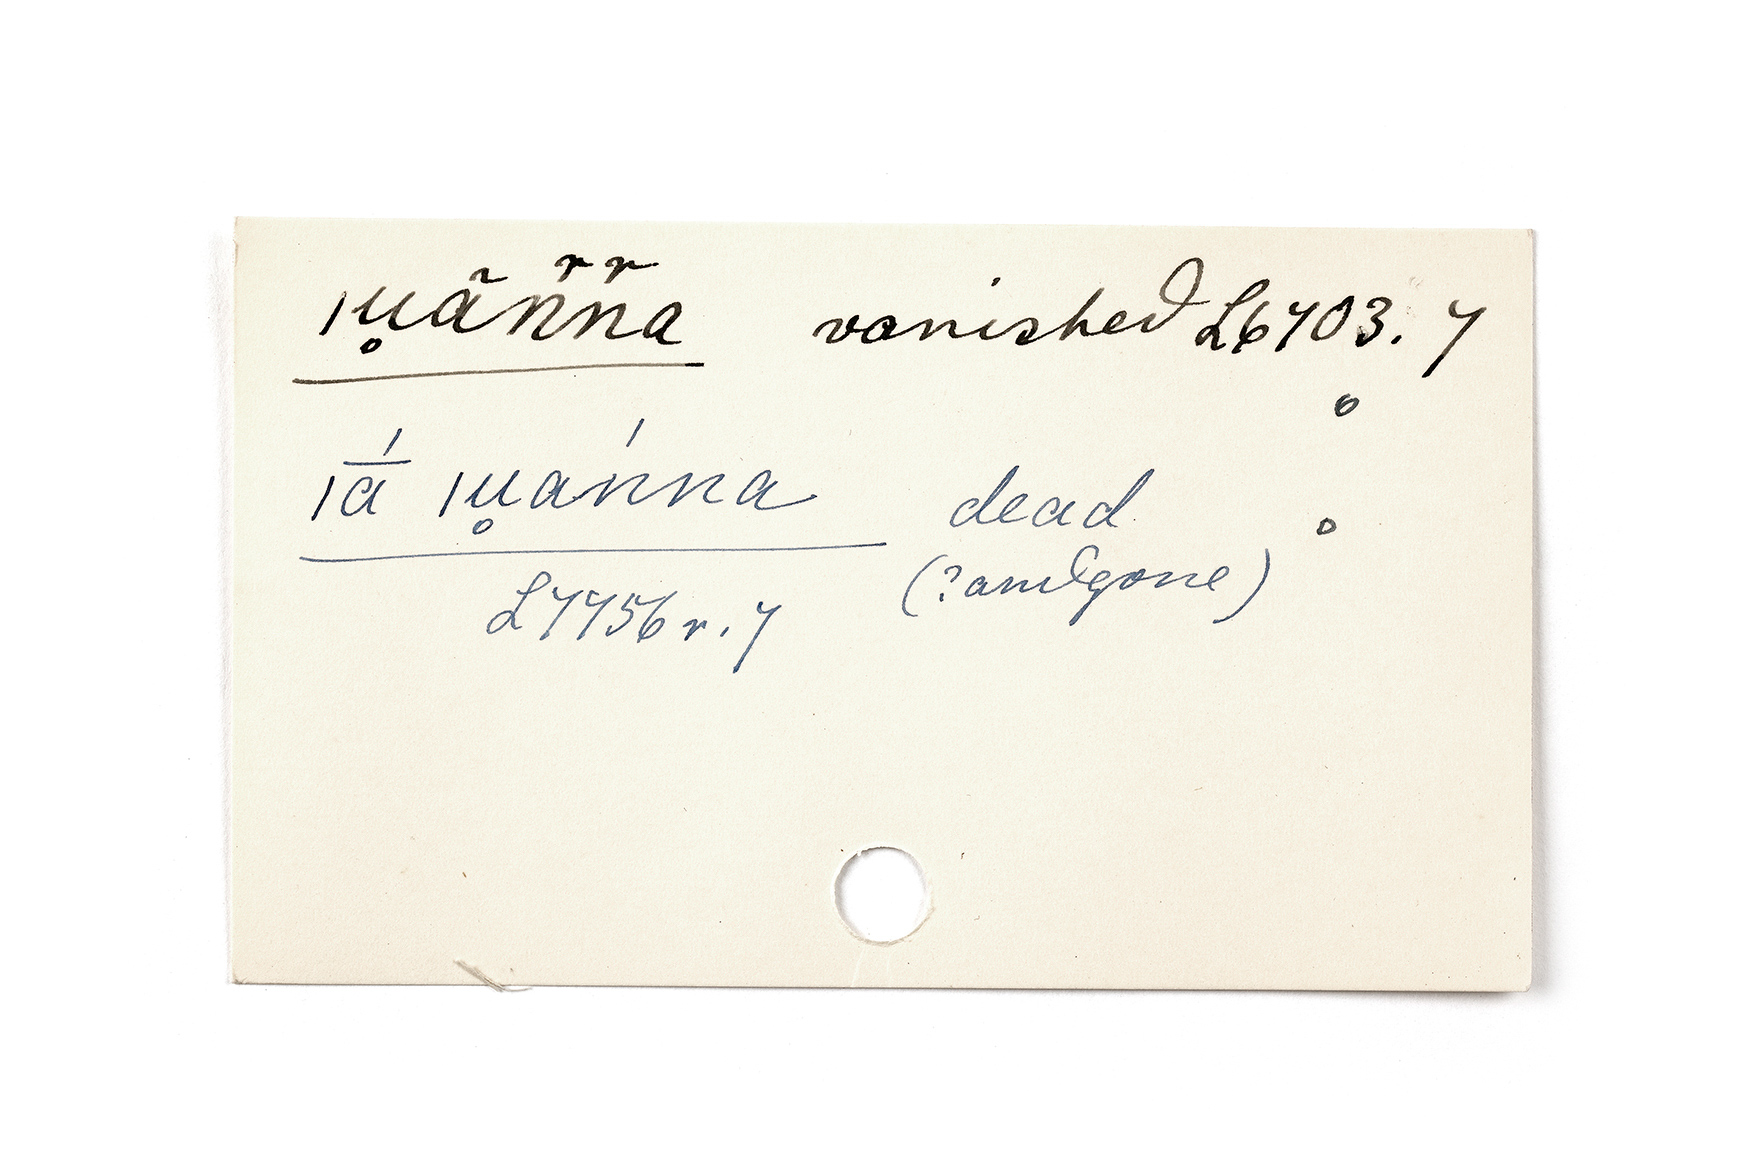 ǀu̥ãn̈n̈a vanished L6703. 7
ǀā́ ǀu̥ánna dead
(? and gone)
L7756 r. 7